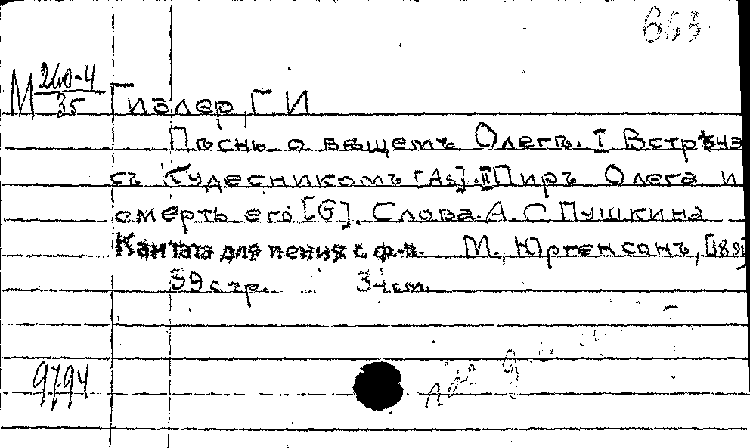 653
М 260-4/35 Гизлер, Г И
Пѣснь о вѣщемъ Олегѣ. I Встрѣча
съ Кудесникомъ [As]. II Пиръ Олега и
смерть его [G]. Слова А. С Пушкина
Кантата для пения с ф-п. М., Юргенсонъ, [189
39 стр. 34 cm.
9794